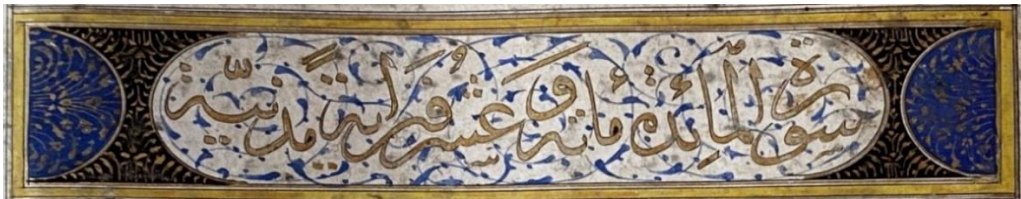 سورة المائدة مائة وعشرون اية مدنية